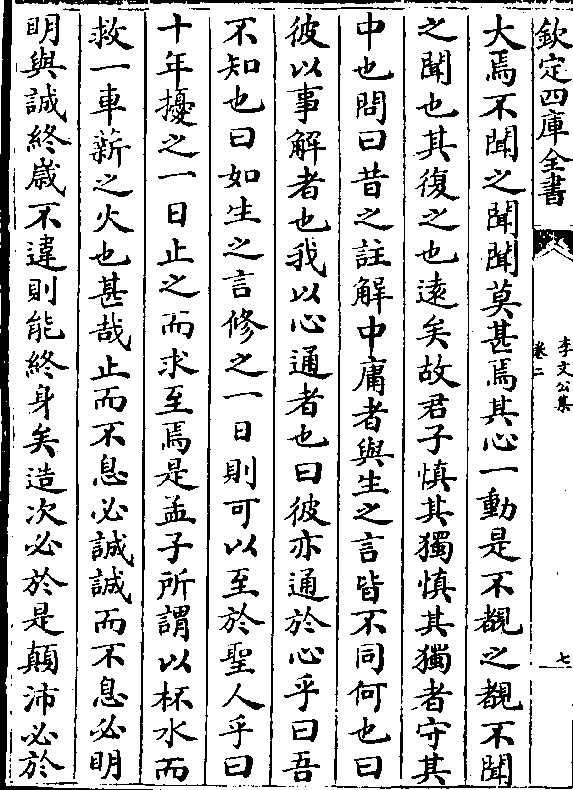 欽定四庫全書
李文公集
卷二
七
大焉不聞之聞聞莫甚焉其心一動是不覩之覩不聞
之聞也其復之也遠矣故君子慎其獨慎其獨者守其
中也問曰昔之註解中庸者與生之言皆不同何也曰
彼以事解者也我以心通者也曰彼亦通於心乎曰吾
不知也曰如生之言修之一日則可以至於聖人乎曰
十年擾之一日止之而求至焉是孟子所謂以杯水而
救一車薪之火也甚哉止而不息必誠誠而不息必明
明與誠終嵗不違則能終身矣造次必於是顛沛必於